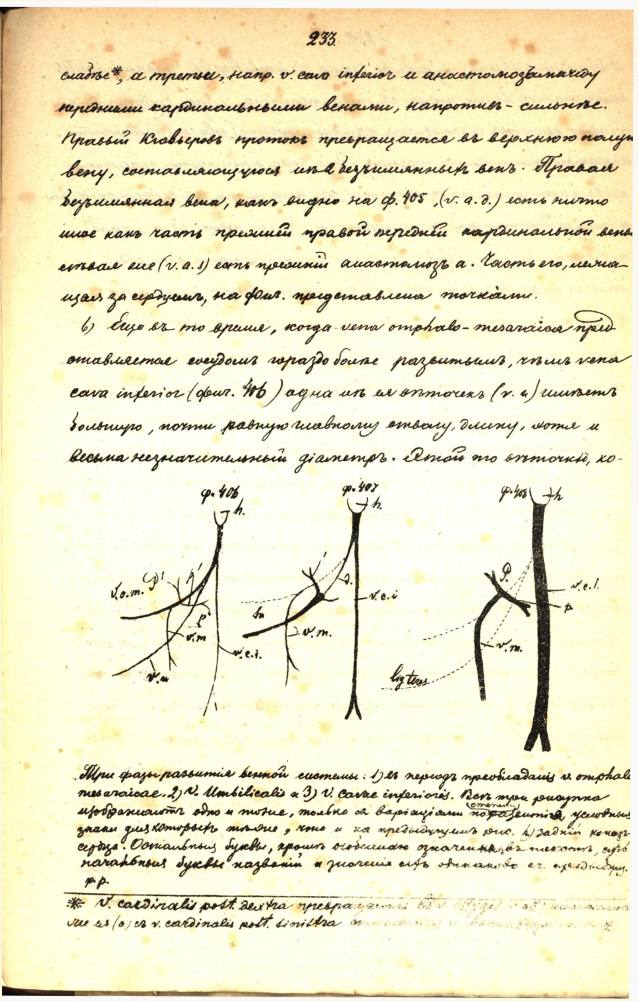 233.
слабѣе*, а третьи, напр. v. cava inferior и анастомозъ между
передними кардинальными венами, напротивъ - сильнѣе.
Правый Кювьеровъ протокъ превращается въ верхнюю полую
вену, составляющуюся изъ 2 безъимянныхъ венъ. Правая
безъимянная вена, какъ видно на ф. 405, (v. a. d.) есть ничто
иное какъ часть прежней правой передней кардинальной вены
лѣвая еже (v. a. s) есть прежній анастомозъ a. Часть его, лежа-
щая за сердцемъ, на фиг. представлена точками.
б) Еще въ то время, когда vena omphalo-mesaraica пред
ставляется сосудомъ гораздо болѣе развитымъ, чѣмъ vena
cava inferior (фиг. 406) одна изъ ея вѣточекъ (v. u) имѣетъ
большую, почти равную главному стволу, длину, хотя и
весьма незначительный діаметръ. Этой то вѣточкѣ, ко-
ф. 406 ф. 407 ф. 408
h. h. h
v. o. m. p' p'
v. m v. u v. c. i.
v. m. v. c. i
P. v. c. i. p
v. m.
lig. teres
Три фазы развитія венной системы: 1) въ періодъ преобладанія v. omphalo
mesaraicae, 2) v. Umbilicalis и 3) v. Cavae inferioris. Всѣ три рисунка
изображаютъ одно и тоже, только съ варіаціями степени развитія, условные
знаки для которыхъ тѣже, что и на предыдущемъ рис. h) задній конецъ
сердца. Остальныя буквы,
начальныя буквы названій и значеніе ихъ одинаково съ предыдущ.
* V. cardinalis post. dextra превращается въ v.
съ v. cardinalis post. sinistra